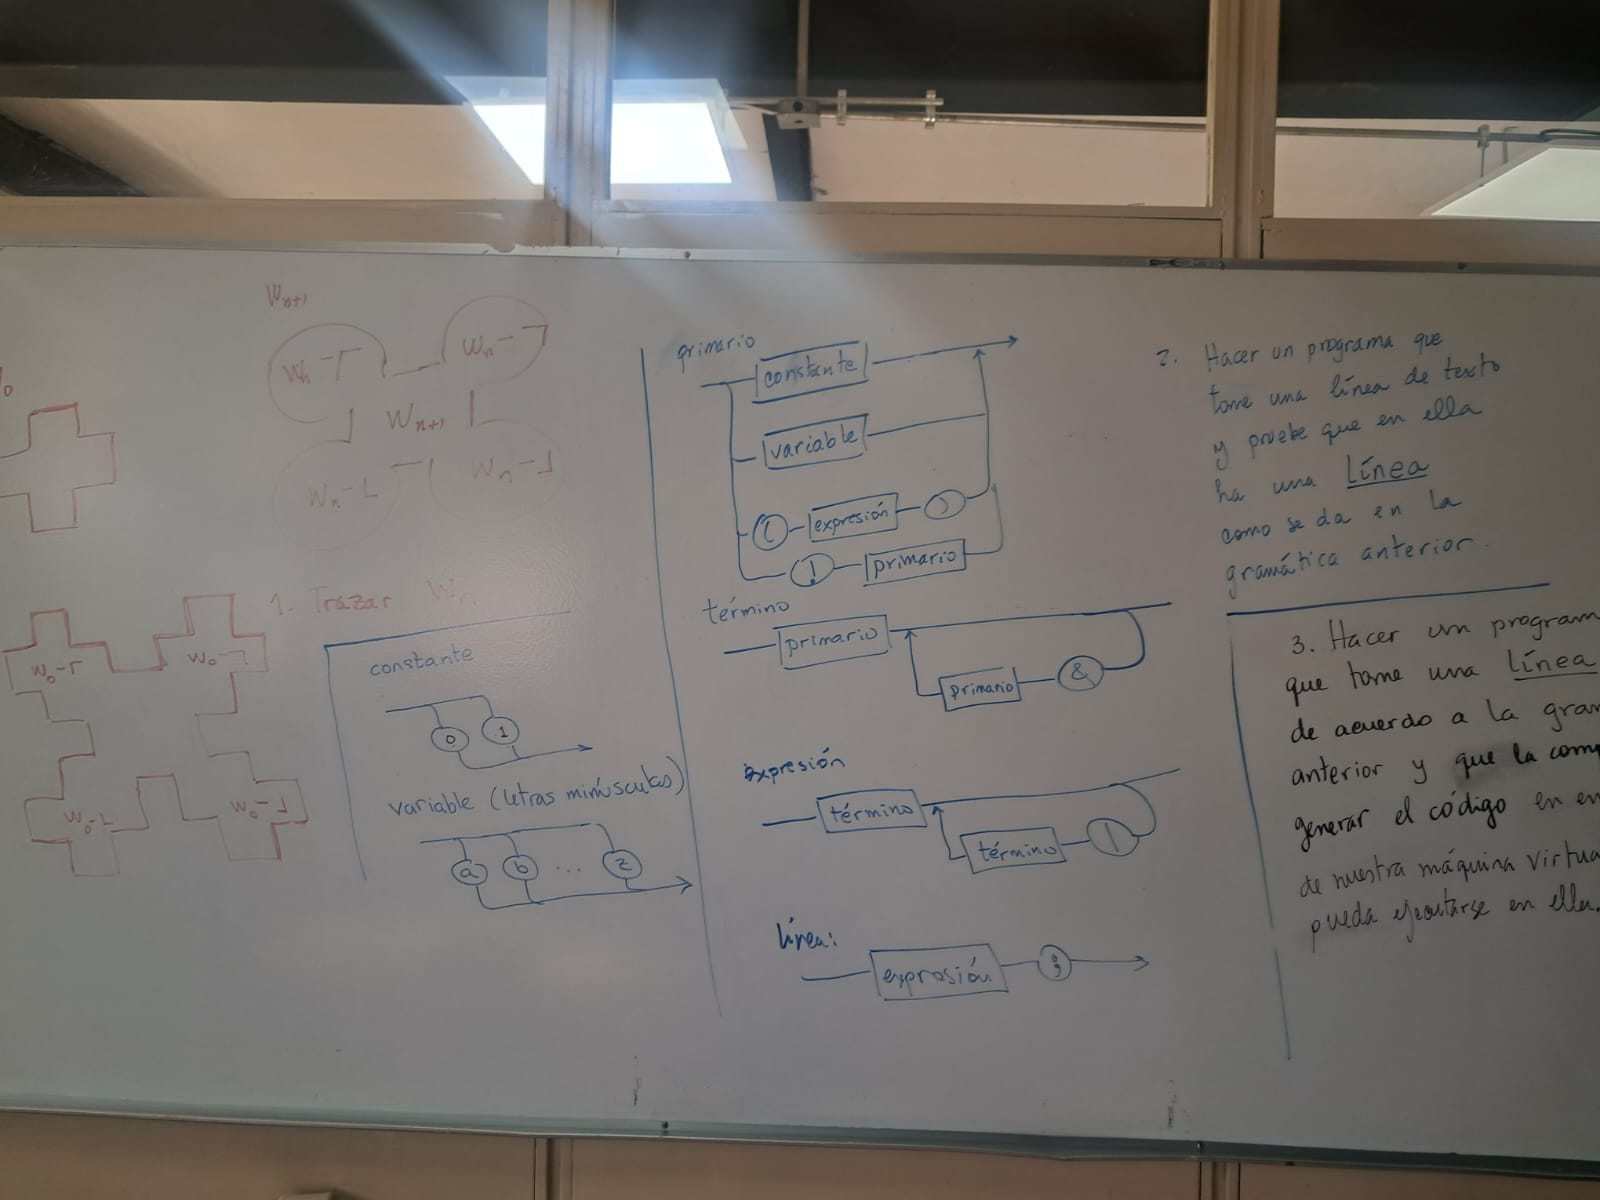 Wn+1
Wn-Γ
Wn-ㄱ
Wn+1
Wn-L
Wn-┘
W0-Γ
W0-ㄱ
W0-L
W0-┘
1. Trazar Wn.
constante
0
1
variable (letras minúsculas)
a b ... z
primario
constante
variable
( expresión )
! primario
término
primario
primario &
expresión
término
término |
línea:
expresión ;
2. Hacer un programa que
tome una línea de texto
y pruebe que en ella
ha una Línea
como se da en la
gramática anterior.
3. Hacer un program
que tome una Línea
de acuerdo a la gram
anterior y que la comp
generar el código en en
de nuestra máquina virtua
pueda ejecutarse en ella.